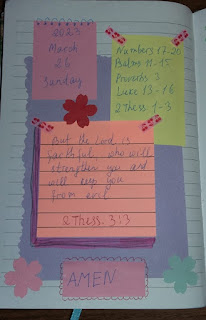 2023
March
26
Sunday
Numbers 17-20
Psalms 11-15
Proverbs 3
Luke 13-16
2 Thess 1-3
But the Lord is
faithful, who will
strengthen you and
will keep you
from evil
2 Thess. 3:3
AMEN